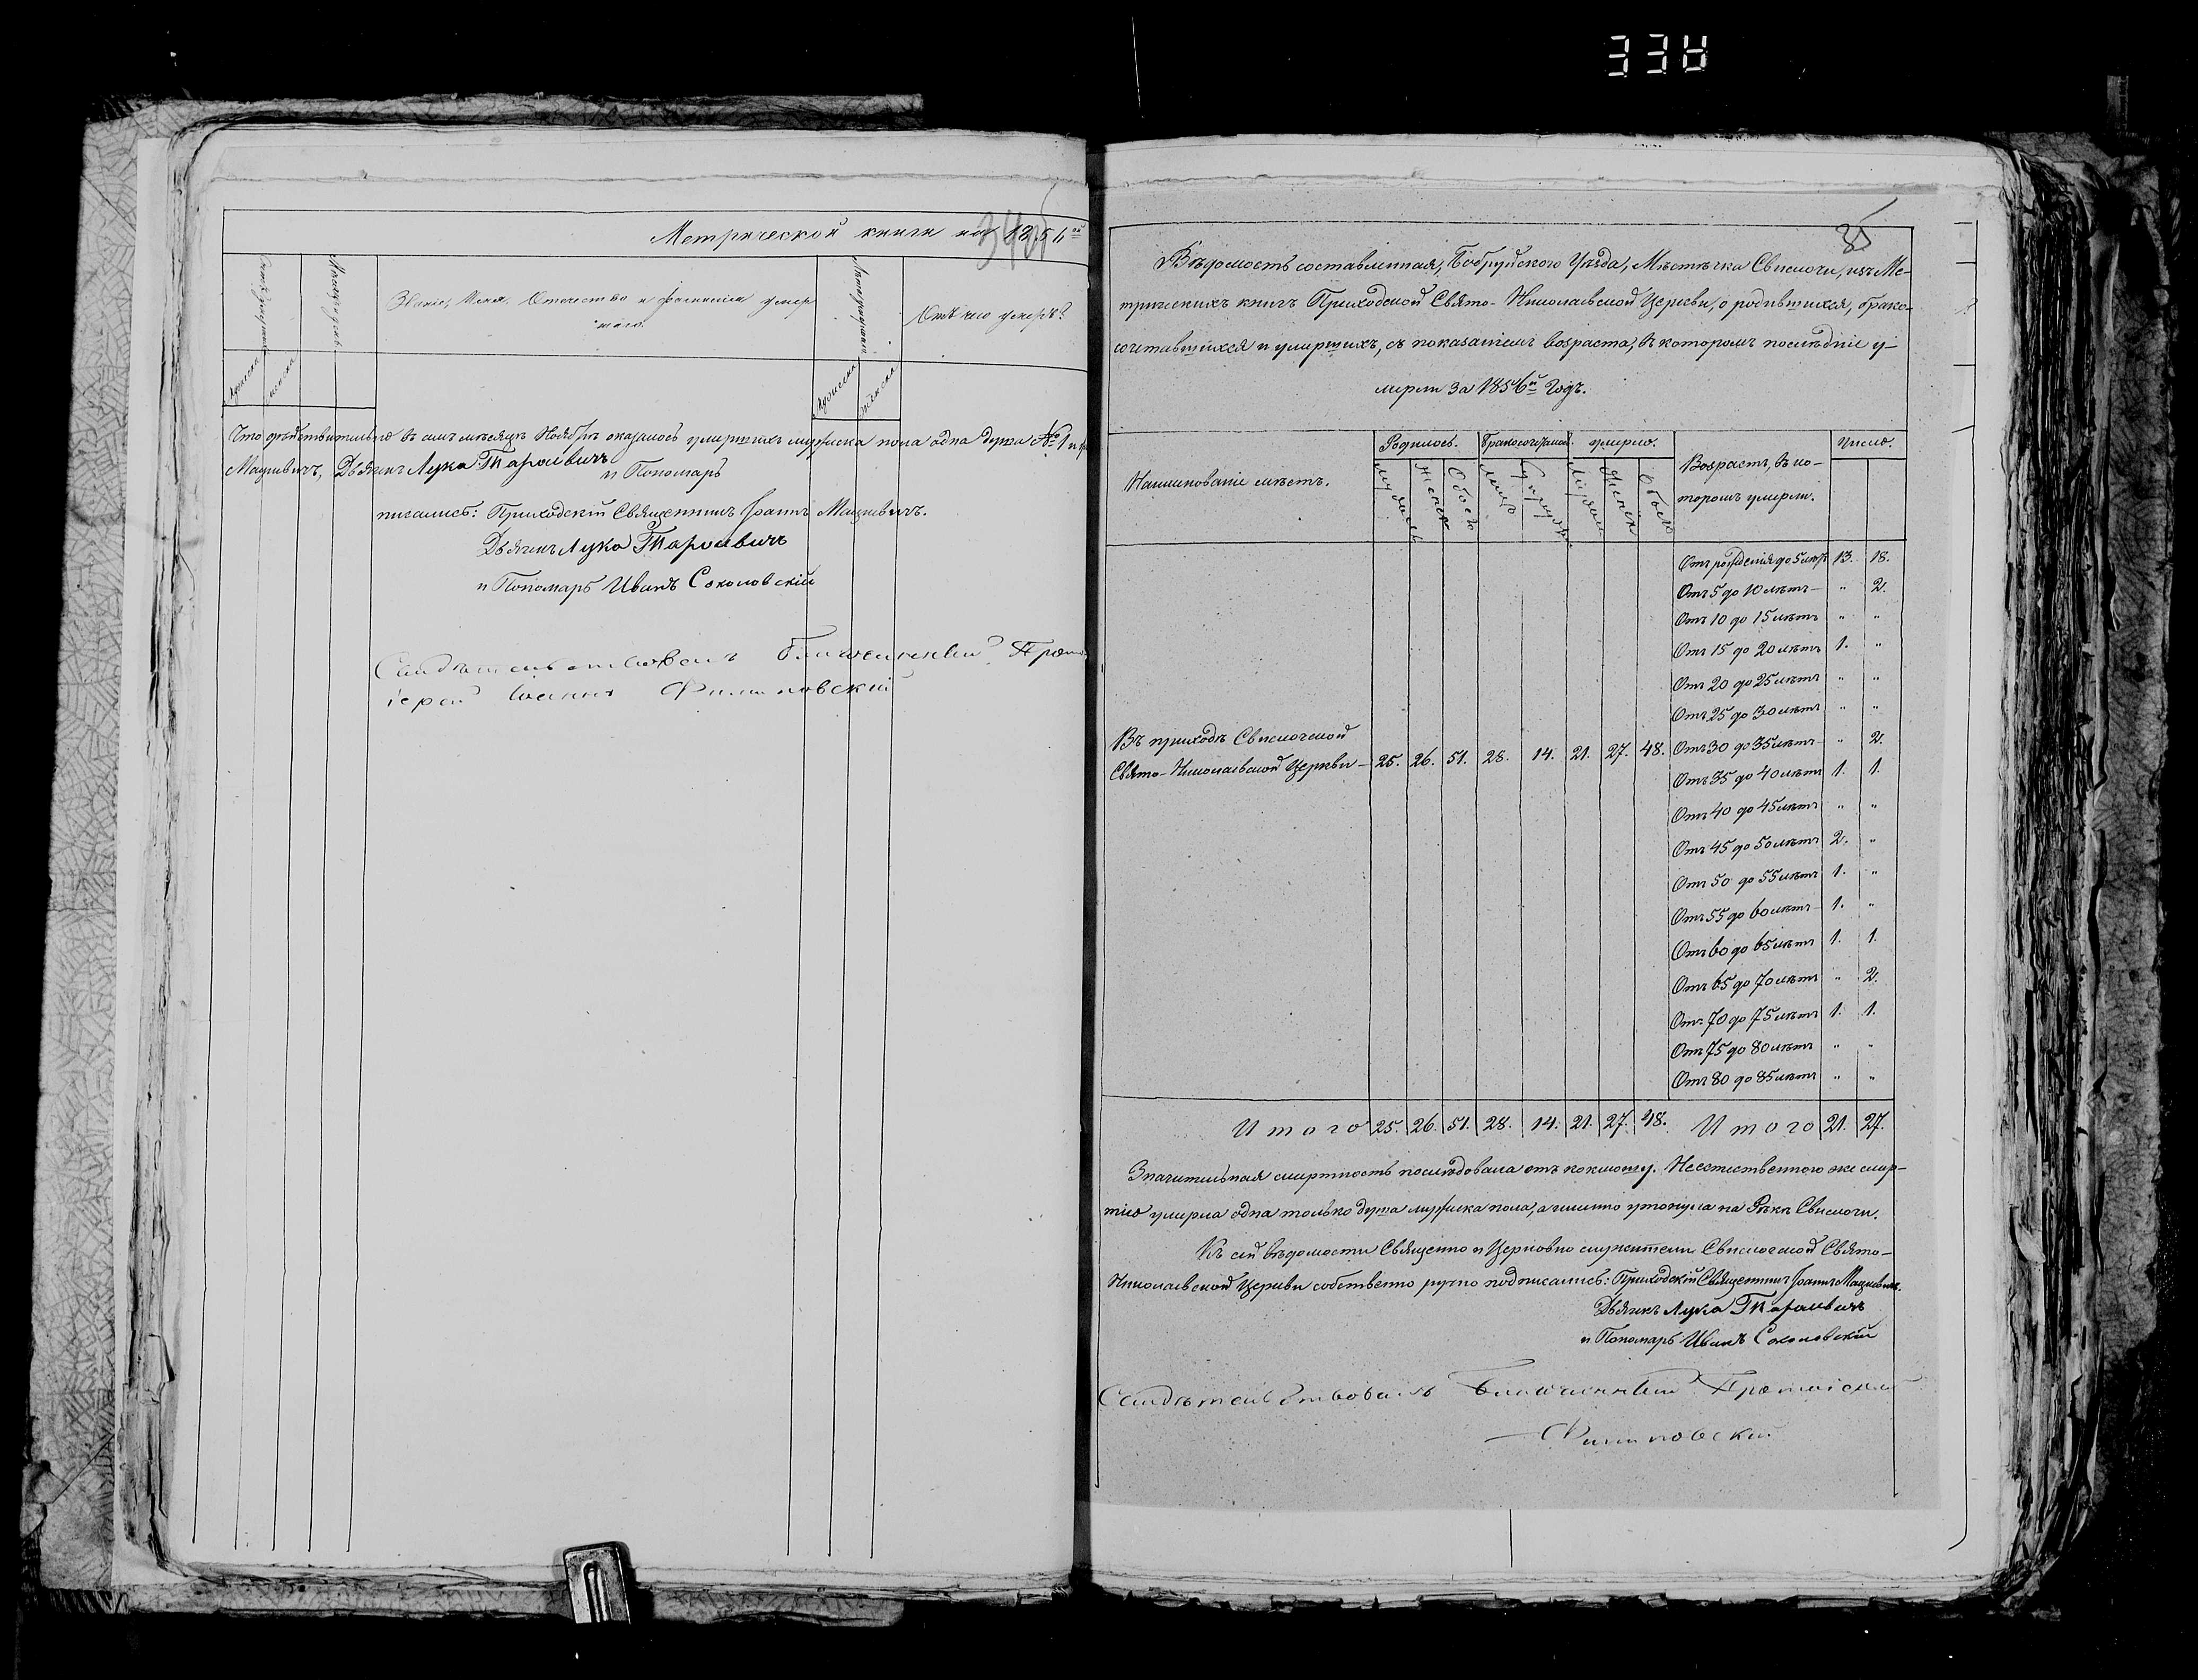 338
34об
Метрической книги на 1856й
Счетъ умершихъ
Мѣсяцъ и день
Званіе, Имя, Отчество и фамилія умер
шаго.
Лѣта умершаго
Отъ чего умеръ?
Мужеска
женска
Мужеска
женска
Что дѣйствительно въ семъ мѣсяцѣ Ноябрѣ оказалось умершихъ мужеска пола одна душа № 1й
Мацкевичъ, Дьячекъ Лука Тарасевичъ
и Пономарь
писались: Приходскій Священникъ Іоаннъ Мацкевичъ.
Дьячекъ Лука Тарасевичъ
и Пономарь Иванъ Соколовскій
Свидѣтельствовалъ Благочинный Прото
іерей Іоаннъ Филиповскій
35
Вѣдомость составленная, Бобруйскаго Уѣзда, Мѣстечка Свислочи, изъ Ме-
трическихъ книгъ Приходской Свято-Николаевской Церкви, о родившихся, брако-
сочетавшихся и умершихъ, съ показаніемъ возраста, въ которомъ послѣдніе у-
мерли за 1856й Годъ.
Родилось. Бракосочеталось. умерло. Число.
Наименованіе мѣстъ. Мужеск Женск Обоего Лицъ Супруж. Мужеск Женск Обоего Возрастъ, въ ко-
торомъ умерли.
Отъ рожденія до 5 лѣтъ 13. 18.
Отъ 5 до 10 лѣтъ - " 2.
Отъ 10 до 15 лѣтъ " "
Отъ 15 до 20 лѣтъ 1. "
Отъ 20 до 25 лѣтъ " "
Отъ 25 до 30 лѣтъ " "
Въ приходѣ Свислочской
Свято-Николаевской Церкви - 25. 26. 51. 28. 14. 21. 27. 48. Отъ 30 до 35 лѣтъ - " 2.
Отъ 35 до 40 лѣтъ 1. 1.
Отъ 40 до 45 лѣтъ " "
Отъ 45 до 50 лѣтъ 2. "
Отъ 50 до 55 лѣтъ 1. "
Отъ 55 до 60 лѣтъ - 1. "
Отъ 60 до 65 лѣтъ 1. 1.
Отъ 65 до 70 лѣтъ " 2.
Отъ 70 до 75 лѣтъ 1. 1.
Отъ 75 до 80 лѣтъ " "
Отъ 80 до 85 лѣтъ " "
Итого 25. 26. 51. 28. 14. 21. 27. 48. Итого 21. 27.
Значительная смертность послѣдовала отъ коклюшу. Неестественною же смер-
тію умерла одна только душа мужеска пола, а именно утонула на Рѣкѣ Свислочи.
Къ сей вѣдомости Священно и Церковно служители Свислочской Свято-
Николаевской Церкви собственно ручно подписались: Приходскій Священникъ Іоаннъ Мацкевичъ.
Дьячекъ Лука Тарасевичъ
и Пономарь Иванъ Соколовскій
Свидѣтельствовалъ Благочинный Протоіерей
Филиповскій